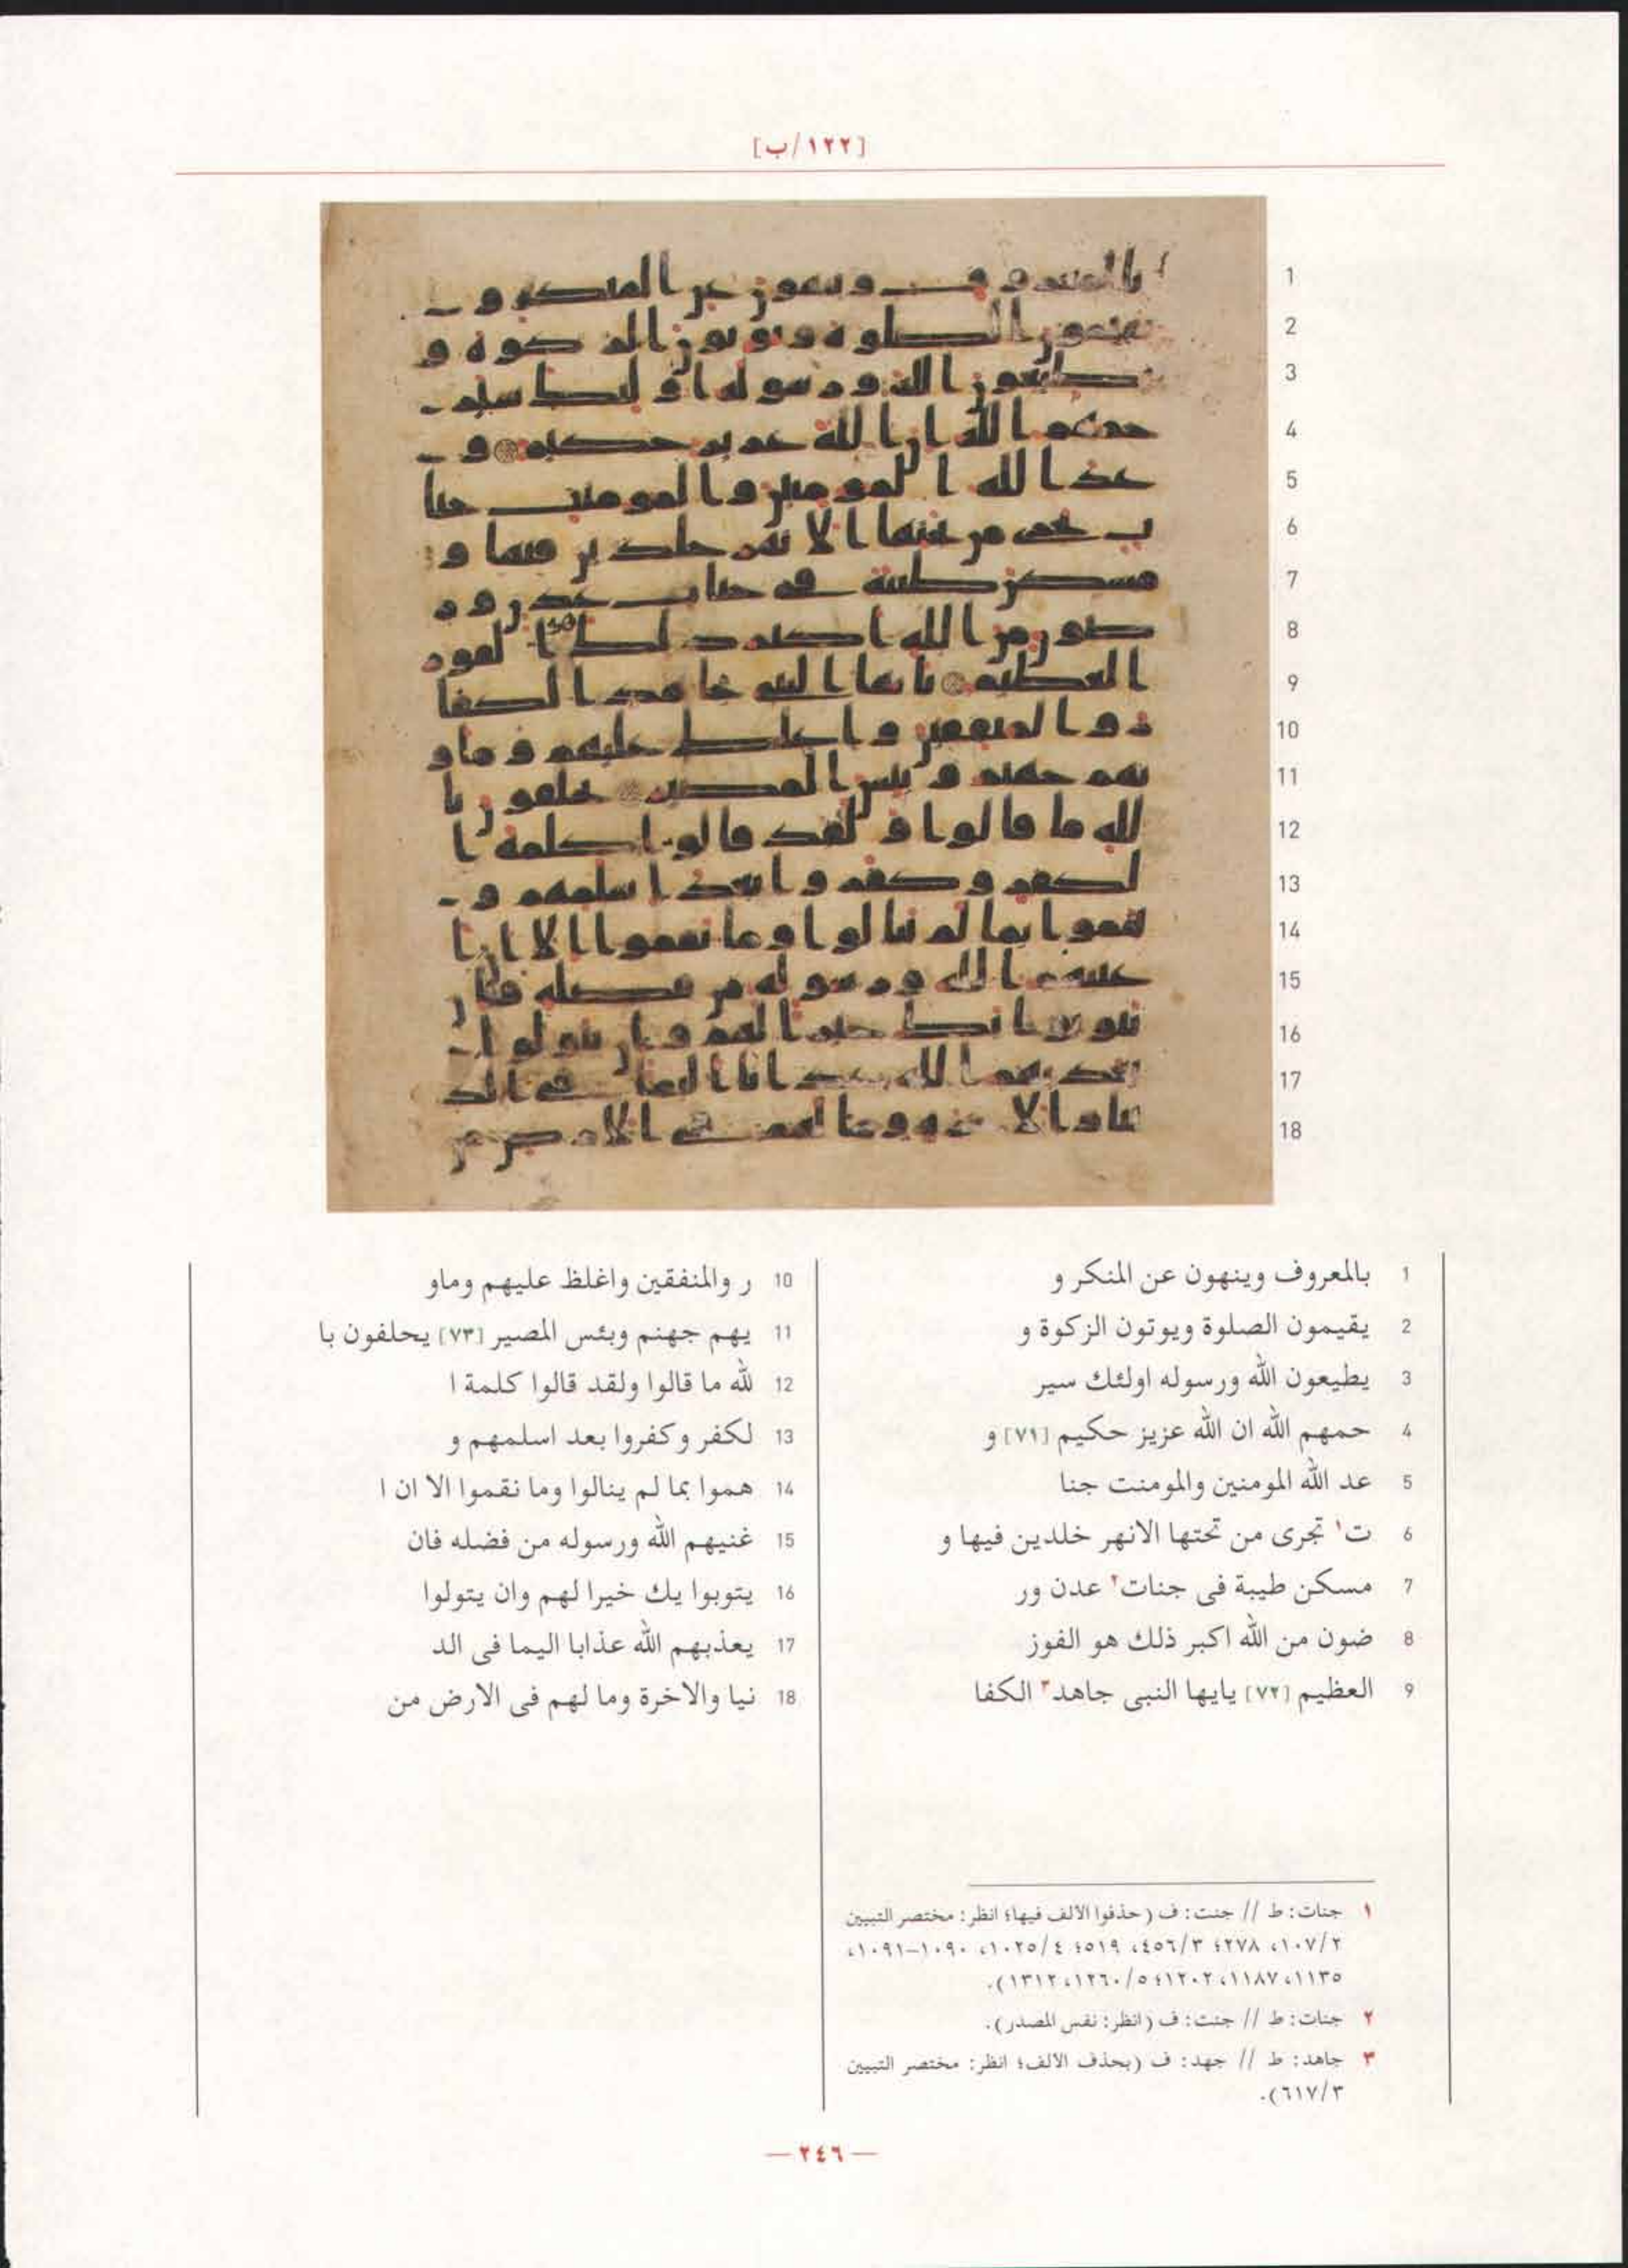 [١٢٢/ب]
1 بالمعروف وينهون عن المنكر و
2 يقيمون الصلوة ويوتون الزكوة و
3 يطيعون الله ورسوله اولئك سير
4 حمهم الله ان الله عزيز حكيم [٧١] و
5 عد الله المومنين والمومنت جنا
6 ت١ تجرى من تحتها الانهر خلدين فيها و
7 مسكن طيبة فى جنات٢ عدن ور
8 ضون من الله اكبر ذلك هو الفوز
9 العظيم [٧٢] يايها النبى جاهد٣ الكفا
10 ر والمنفقين واغلظ عليهم وماو
11 يهم جهنم وبئس المصير [٧٣] يحلفون با
12 لله ما قالوا ولقد قالوا كلمة ا
13 لكفر وكفروا بعد اسلمهم و
14 هموا بما لم ينالوا وما نقموا الا ان ا
15 غنيهم الله ورسوله من فضله فان
16 يتوبوا يك خيرا لهم وان يتولوا
17 يعذبهم الله عذابا اليما فى الد
18 نيا والاخرة وما لهم فى الارض من
١ جنات: ط // جنت: ف (حذفوا الألف فيها؛ انظر: مختصر التبيين
٢/١٠٧، ٢٧٨؛ ٣/٤٥٦، ٥١٩؛ ٤/١٠٢٥، ١٠٩٠-١٠٩١،
١١٣٥، ١١٨٧، ١٢٠٢؛ ٥/١٢٦٠، ١٣١٢).
٢ جنات: ط // جنت: ف (انظر: نفس المصدر).
٣ جاهد: ط // جهد: ف (بحذف الألف؛ انظر: مختصر التبيين
٣/٦١٧).
— ٢٤٦ —